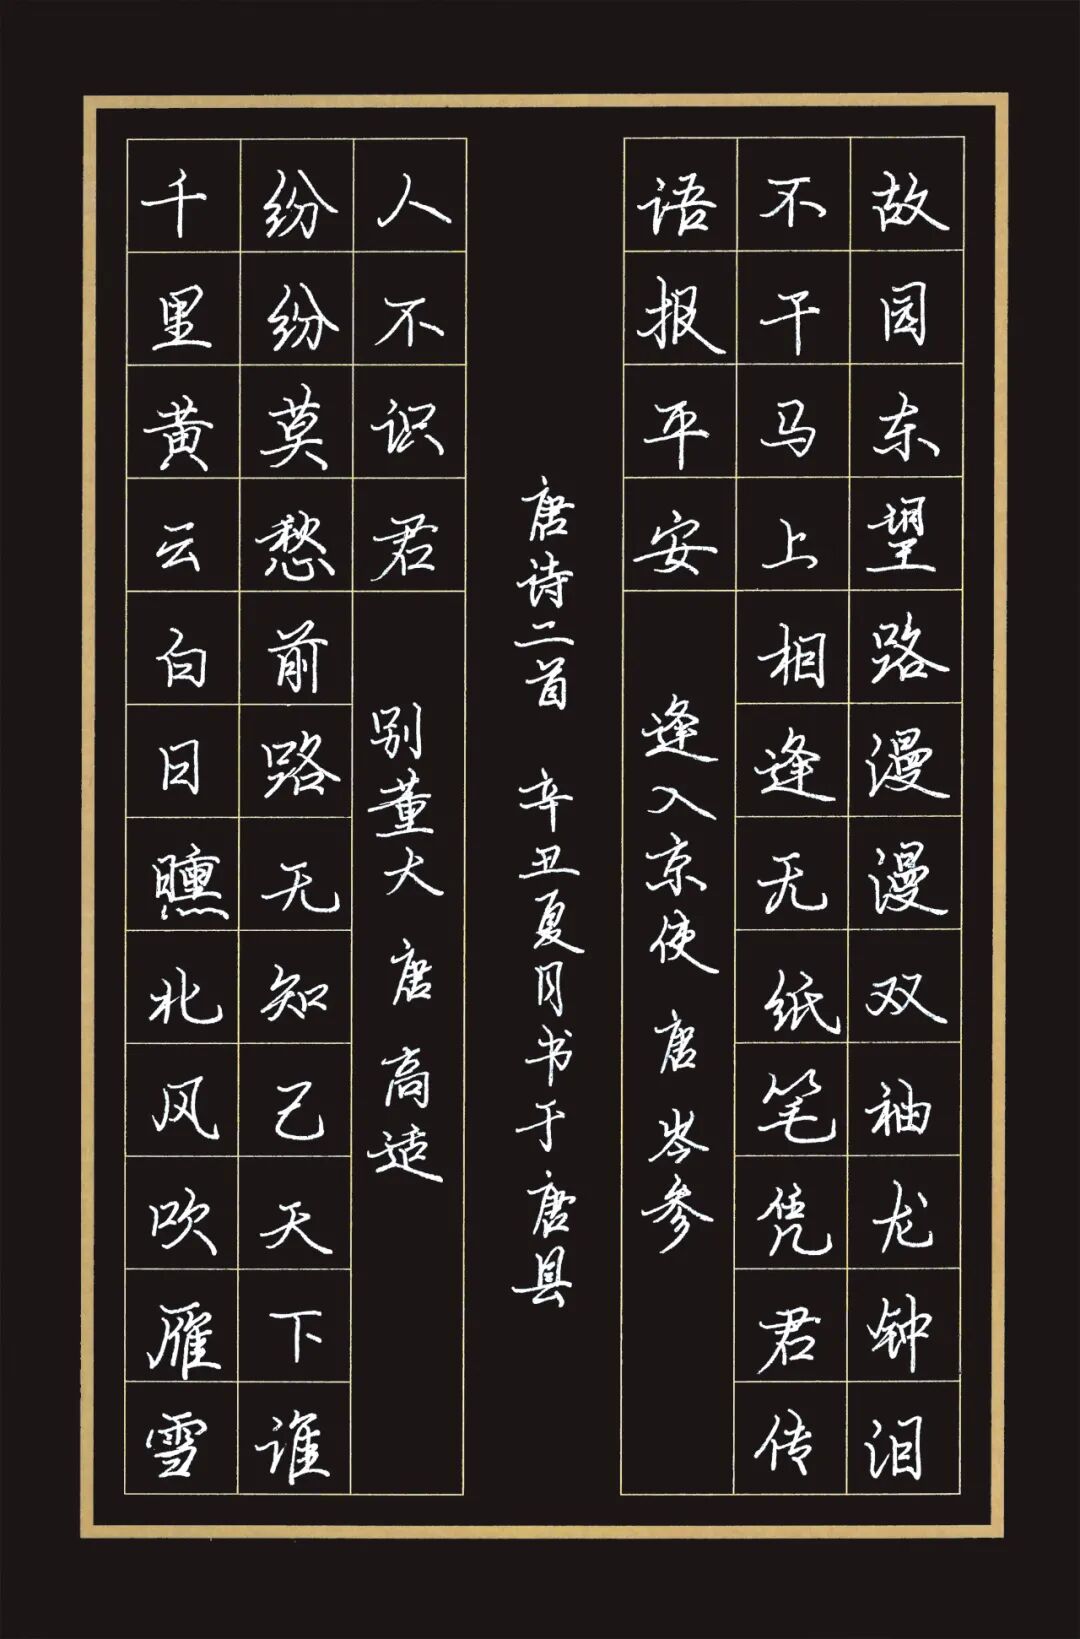 故园东望路漫漫双袖龙钟泪
不干马上相逢无纸笔凭君传
语报平安
逢入京使 唐 岑参
千里黄云白日曛北风吹雁雪
纷纷莫愁前路无知己天下谁
人不识君
别董大 唐 高适
唐诗二首 辛丑夏月书于唐县